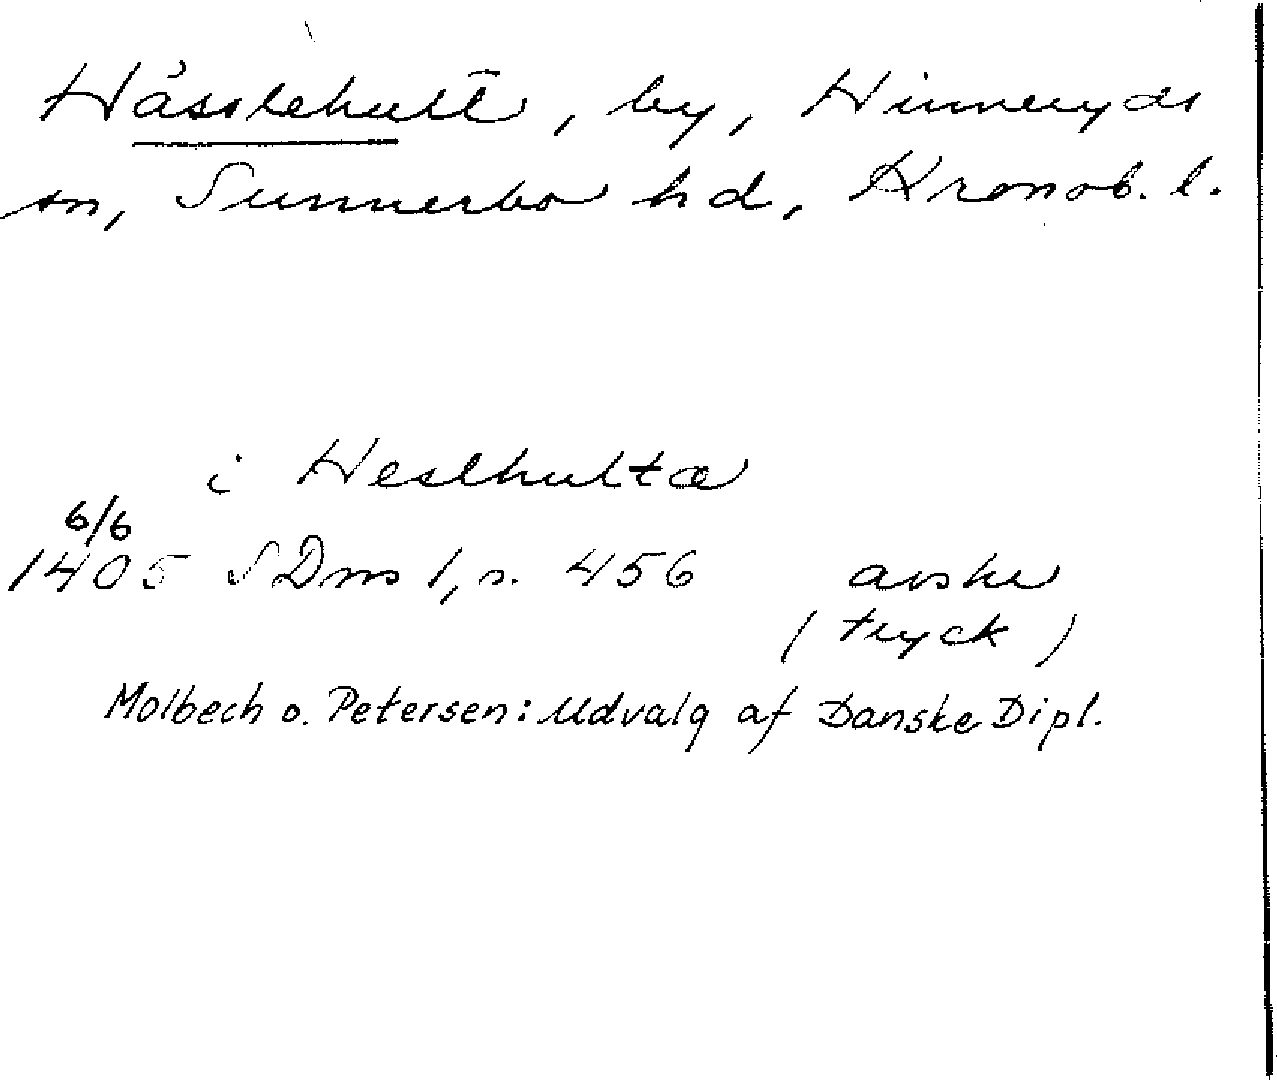 Hässlehult, by, Hinneryds
sn, Sunnerbo hd, Kronob. l.
i Heslhulta
6/6
1405 SDns 1, s. 456 avskr
(tryck)
Molbech o. Petersen: Udvalg af Danske Dipl.